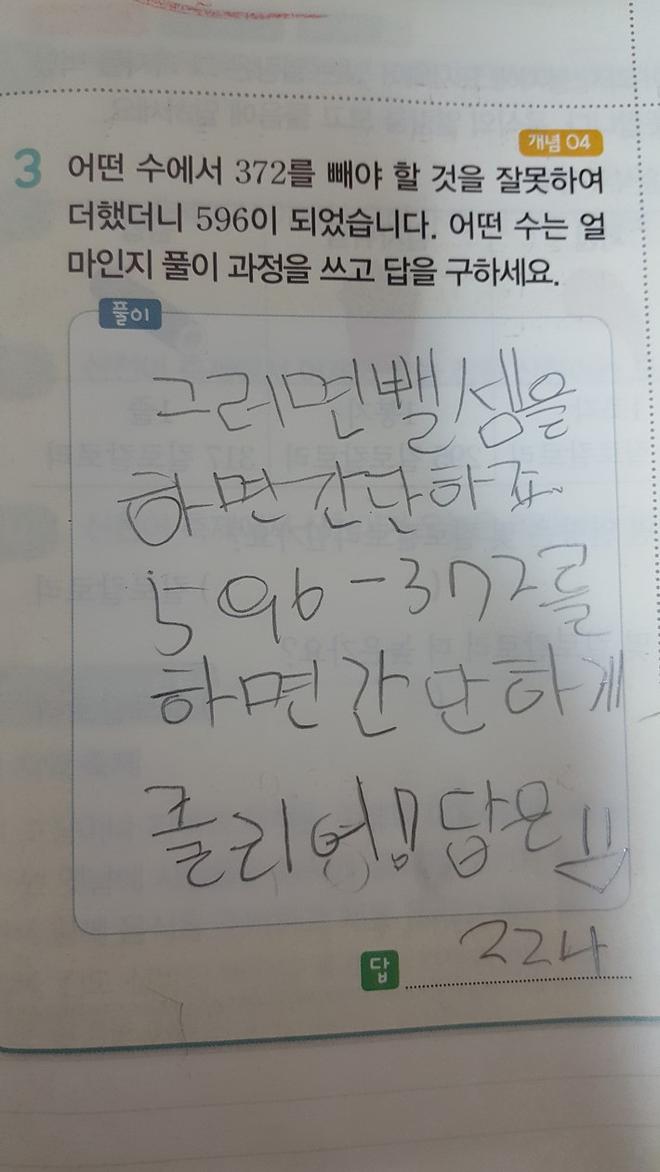 개념 04
3 어떤 수에서 372를 빼야 할 것을 잘못하여
더했더니 596이 되었습니다. 어떤 수는 얼
마인지 풀이 과정을 쓰고 답을 구하세요.
풀이
그러면 뺄셈을
하면 간단하죠.
596-372를
하면 간단하게
풀리여! 답은
답 224